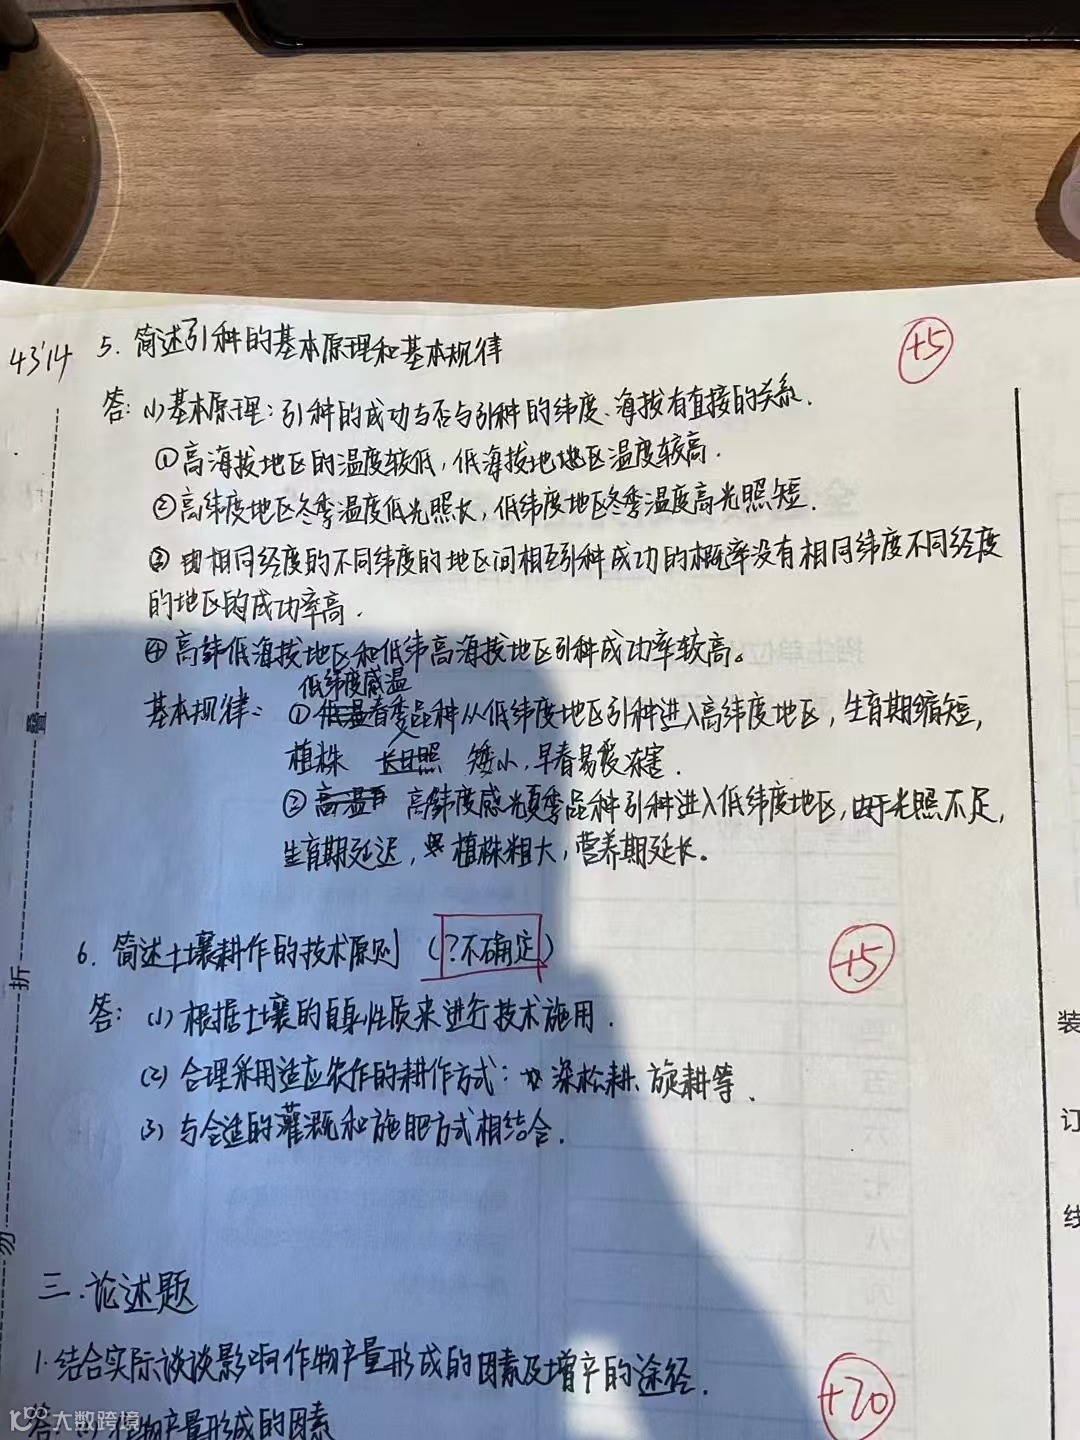 43'14
5. 简述引种的基本原理和基本规律
+5
答: (1)基本原理: 引种的成功与否与引种的纬度、海拔有直接的关系.
①高海拔地区的温度较低, 低海拔地区温度较高.
②高纬度地区冬季温度低光照长, 低纬度地区冬季温度高光照短.
③ 相同经度的不同纬度的地区间相互引种成功的概率没有相同纬度不同经度
的地区的成功率高.
④高纬低海拔地区和低纬高海拔地区引种成功率较高。
低纬度感温
基本规律: ①低温春季品种从低纬度地区引种进入高纬度地区, 生育期缩短,
植株 长日照 矮小, 早春易受冻害.
②高温 高纬度感光夏季品种引种进入低纬度地区, 由于光照不足,
生育期延迟, 植株粗大, 营养期延长。
6. 简述土壤耕作的技术原则 (?不确定)
+5
答: (1)根据土壤的自身性质来进行技术施用.
(2)合理采用适应农作的耕作方式: 深松耕、旋耕等.
(3)与合适的灌溉和施肥方式相结合.
三.论述题
1.结合实际谈谈影响作物产量形成的因素及增产的途径.
+20
答: (1)作物产量形成的因素
叠
折
勿
装
订
线
大数跨境